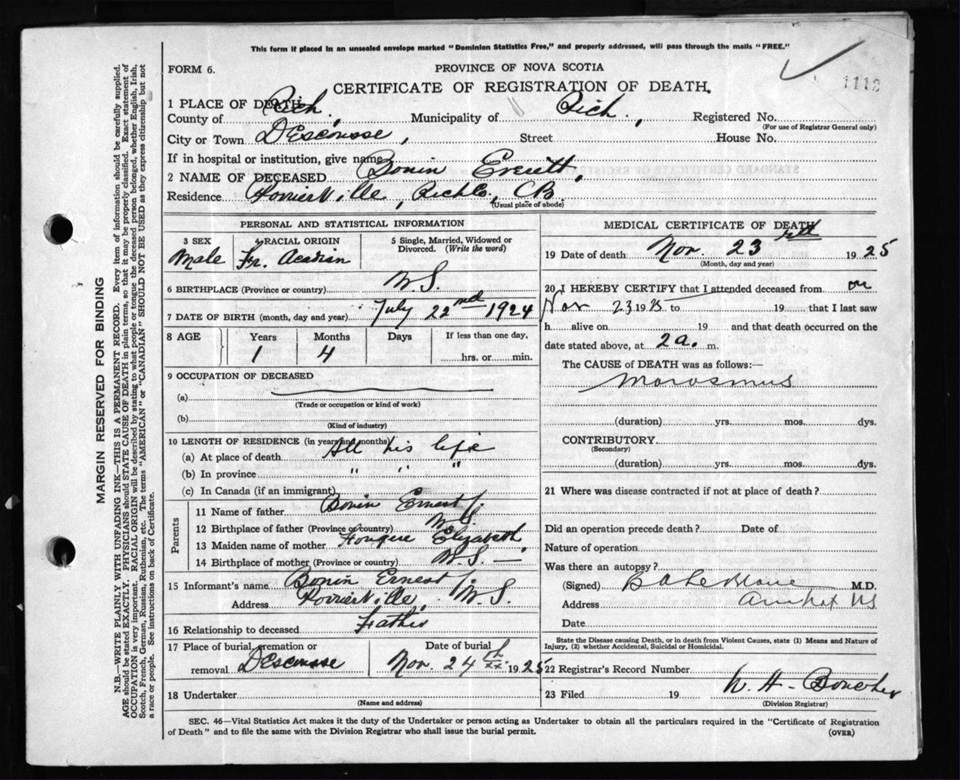 This form if placed in an unsealed envelope marked "Dominion Statistics Free," and properly addressed, will pass through the mails "FREE."
FORM 6.
PROVINCE OF NOVA SCOTIA
1112
CERTIFICATE OF REGISTRATION OF DEATH.
1 PLACE OF DEATH
County of Rich, Municipality of Rich, Registered No.
(For use of Registrar General only)
City or Town DEscousse, Street House No.
If in hospital or institution, give name
2 NAME OF DECEASED Bonin Everett,
Residence Poirierville, Rich Co, CB
(Usual place of abode)
PERSONAL AND STATISTICAL INFORMATION
3 SEX Male
4 RACIAL ORIGIN Fr. Acadian
5 Single, Married, Widowed or Divorced. (Write the word)
6 BIRTHPLACE (Province or country) N S.
7 DATE OF BIRTH (month, day and year) July 22nd 1924
8 AGE Years Months Days If less than one day,
1 4 hrs. or min.
9 OCCUPATION OF DECEASED
(a)
(Trade or occupation or kind of work)
(b)
(Kind of industry)
10 LENGTH OF RESIDENCE (in years and months)
(a) At place of death All his life
(b) In province " " "
(c) In Canada (if an immigrant)
Parents
11 Name of father Bonin Ernest
12 Birthplace of father (Province or country) N.S.
13 Maiden name of mother Fougere Elizabeth,
14 Birthplace of mother (Province or country) N.S. —
15 Informant's name Bonin Ernest
Address Poirierville, N.S.
16 Relationship to deceased Father
17 Place of burial, cremation or removal DEscousse
Date of burial Nov. 24th 1925
18 Undertaker
(Name and address)
MEDICAL CERTIFICATE OF DEATH
19 Date of death Nov. 23 1925
(Month, day and year)
20 I HEREBY CERTIFY that I attended deceased from on
Nov 23 1925 to 19 that I last saw
h alive on 19 and that death occurred on
date stated above, at 2 a. m.
The CAUSE of DEATH was as follows:—
Morosmus
(duration) yrs. mos. dys.
CONTRIBUTORY
(Secondary)
(duration) yrs. mos. dys.
21 Where was disease contracted if not at place of death?
Did an operation precede death? Date of
Nature of operation
Was there an autopsy?
(Signed) B A LeBlanc M.D.
Address Arichat NS
Date
State the Disease causing Death, or in death from Violent Causes, state (1) Means and Nature of
Injury, (2) whether Accidental, Suicidal or Homicidal.
22 Registrar's Record Number
23 Filed 19 W. H. Boucher
(Division Registrar)
SEC. 46—Vital Statistics Act makes it the duty of the Undertaker or person acting as Undertaker to obtain all the particulars required in the "Certificate of Registration
of Death" and to file the same with the Division Registrar who shall issue the burial permit.
(OVER)
MARGIN RESERVED FOR BINDING
N.B.—WRITE PLAINLY WITH UNFADING INK—THIS IS A PERMANENT RECORD. Every item of information should be carefully supplied.
AGE should be stated EXACTLY. PHYSICIANS should STATE CAUSE OF DEATH in plain terms, so that it may be properly classified. Exact statement of
OCCUPATION is very important. RACIAL ORIGIN will be described by stating to what people or tongue the deceased person belonged, whether English, Irish,
Scotch, French, German, Russian, Ruthenian, etc. The terms "AMERICAN" or "CANADIAN" SHOULD NOT BE USED as they express citizenship but not
a race or people. See instructions on back of Certificate.